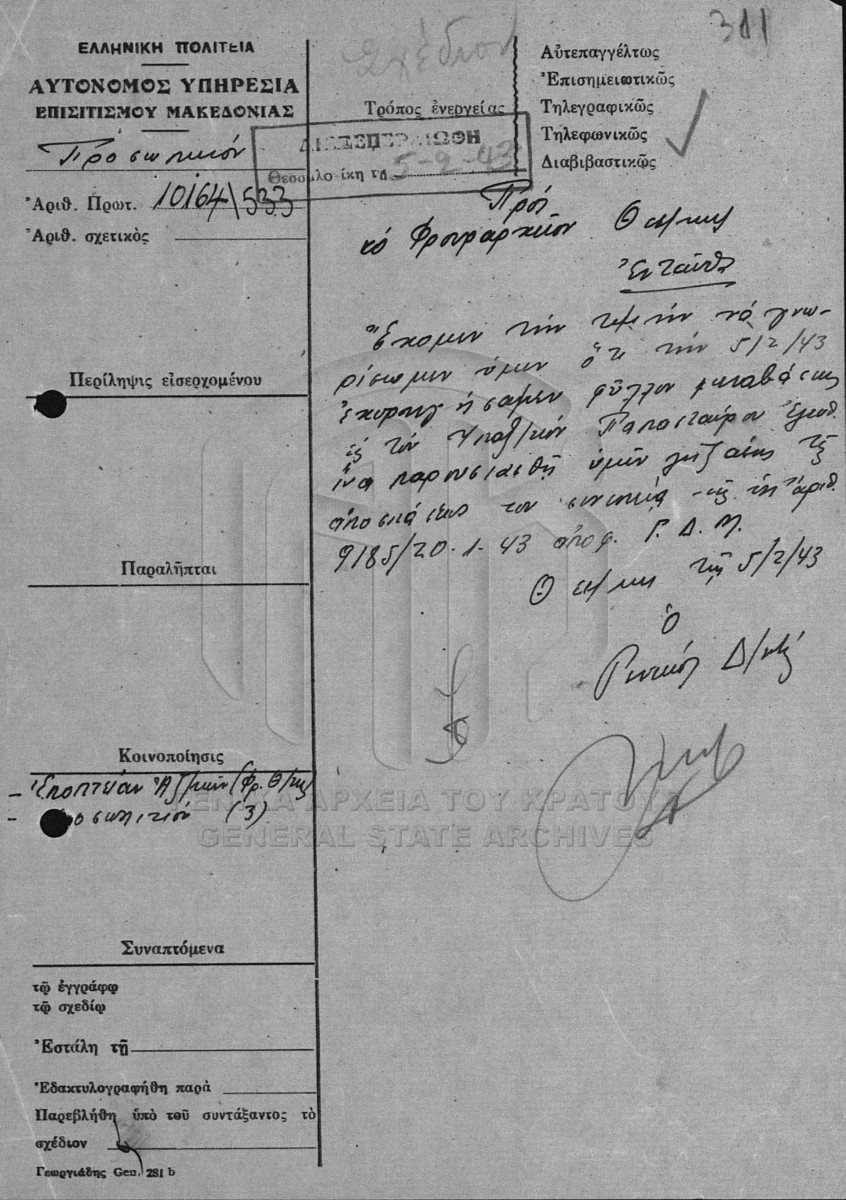 311
Σχέδιον
ΕΛΛΗΝΙΚΗ ΠΟΛΙΤΕΙΑ
ΑΥΤΟΝΟΜΟΣ ΥΠΗΡΕΣΙΑ
ΕΠΙΣΙΤΙΣΜΟΥ ΜΑΚΕΔΟΝΙΑΣ
Προσωπικόν
Ἀριθ. Πρωτ. 10164\533
Ἀριθ. σχετικὸς
Τρόπος ἐνεργείας
Αὐτεπαγγέλτως
Ἐπισημειωτικῶς
Τηλεγραφικῶς
Τηλεφωνικῶς
Διαβιβαστικῶς
ΔΙΕΞΕΠΕΡΑΙΩΘΗ
Θεσσαλονίκη τῇ 5-2-43
Πρὸς
τὸ Φρουραρχεῖον Θεσ/κης
Ἐνταῦθα
Ἔχομεν τὴν τιμὴν νὰ γνω-
ρίσωμεν ὑμῖν ὅτι τὴν 5/2/43
ἐχορηγήσαμεν φύλλον μεταβάσεως
εἰς τὸν Ὑπαξ/κὸν Παπασταύρου Ἐλευθ.
ἵνα παρουσιασθῇ ὑμῖν τῆς
ἀποσπάσεώς του συνεπείᾳ τῆς ὑπ' ἀριθ.
9185/20-1-43 ἀποφ. Γ. Δ. Μ.
Θεσ/κη τῇ 5/2/43
Ὁ
Γενικὸς Δ/ντὴς
Περίληψις εἰσερχομένου
Παραλῆπται
Κοινοποίησις
- Ἐποπτείαν Ἀξ/κῶν (Φρ. Θ/κης)
- (3)
ΓΕΝΙΚΑ ΑΡΧΕΙΑ ΤΟΥ ΚΡΑΤΟΥΣ
GENERAL STATE ARCHIVES
Συναπτόμενα
τῷ ἐγγράφῳ
τῷ σχεδίῳ
Ἐστάλη τῇ
Ἐδακτυλογραφήθη παρὰ
Παρεβλήθη ὑπὸ τοῦ συντάξαντος τὸ
σχέδιον
Γεωργιάδης Gen. 281 b